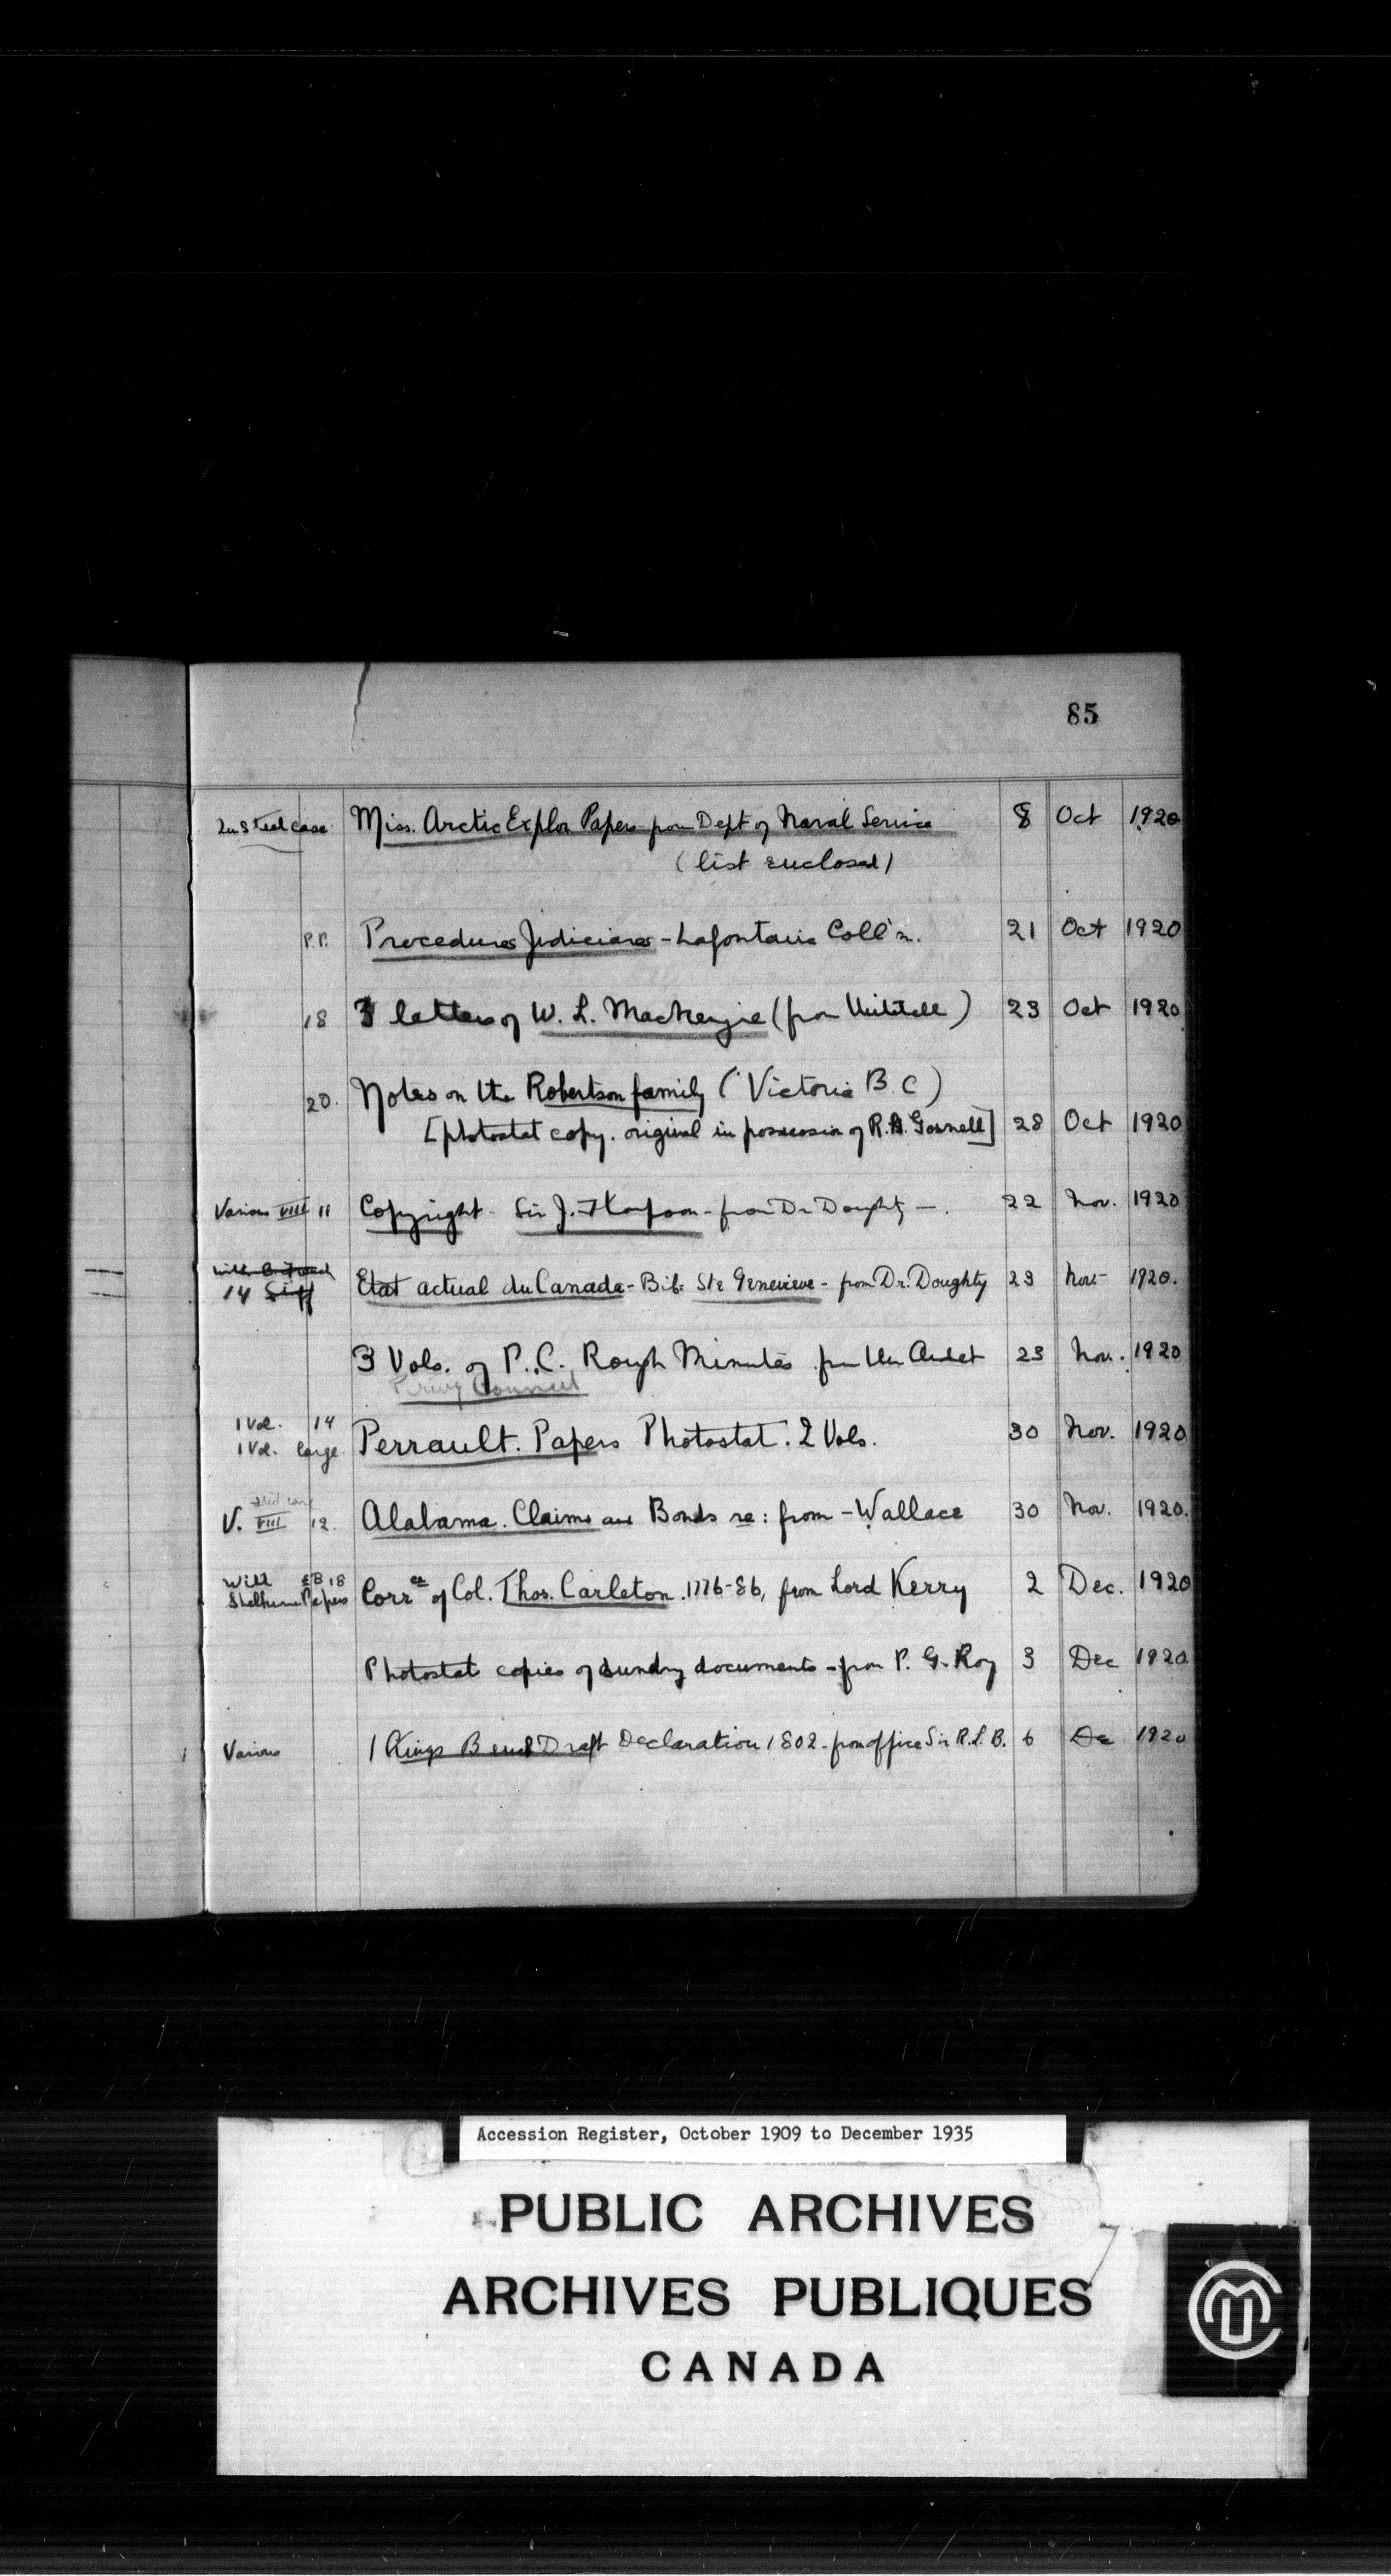 85
In Steel case Miss. Arctic Explor Papers from Dept of Naval Service 8 Oct 1920
(list enclosed)
P.P. Procedures Judiciares - Lafontaine Coll'n. 21 Oct 1920
18 3 letters of W. L. MacKenzie (from ) 23 Oct 1920
20. Notes on the Robertson family (Victoria B.C)
[photostat copy. original in possession of R. Gosnell] 28 Oct 1920
Various VIII 11 Copyright - Sir J. Thompson - from Dr Doughty -. 22 Nov. 1920
14 Etat actual du Canada - Bib: Ste Genevieve - from Dr. Doughty 23 Nov 1920.
3 Vols. of P.C. Rough Minutes from Audet 23 Nov. 1920
Privy Council
1 Vol. 14
1 Vol. large Perrault. Papers Photostat. 2 Vols. 30 Nov. 1920
V. VIII 12. Alabama. Claims Bonds re: from - Wallace 30 Nov. 1920.
With 18
Shelburne Papers Corrce of Col. Thos. Carleton. 1776-86, from Lord Kerry 2 Dec. 1920
Photostat copies of sundry documents - from P. G. Roy 3 Dec 1920
Various 1 Kings Bench Draft Declaration 1802 - from office Sir R.L.B. 6 De 1920
Accession Register, October 1909 to December 1935
PUBLIC ARCHIVES
ARCHIVES PUBLIQUES
CANADA